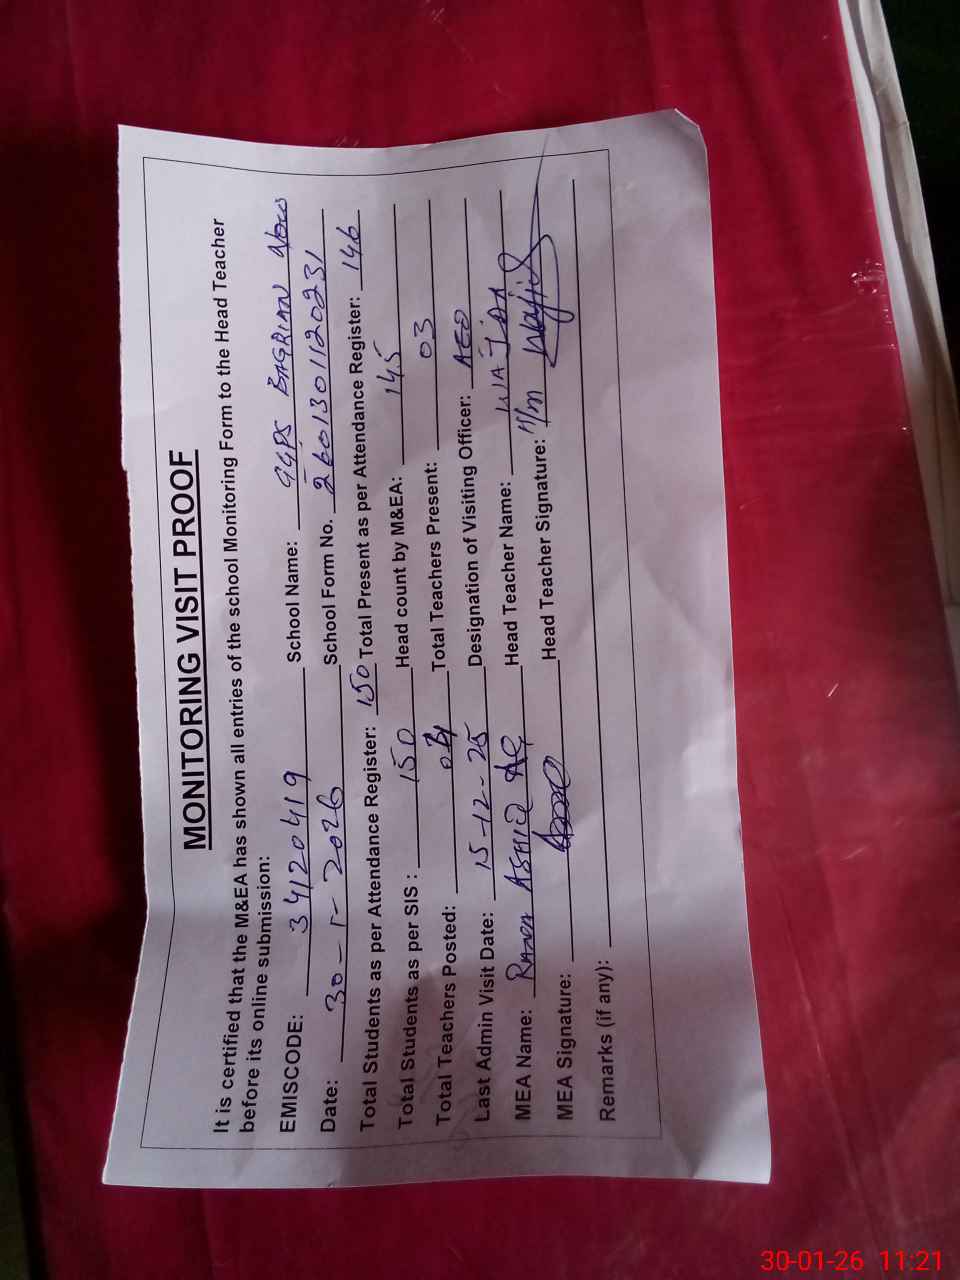 MONITORING VISIT PROOF
It is certified that the M&EA has shown all entries of the school Monitoring Form to the Head Teacher
before its online submission:
EMISCODE: 34120419 School Name: GGPS BAGRIAN
Date: 30-1-2026 School Form No. 2601301120231
Total Students as per Attendance Register: 150 Total Present as per Attendance Register: 146
Total Students as per SIS : 150 Head count by M&EA: 145
Total Teachers Posted: Total Teachers Present: 03
Last Admin Visit Date: 15-12-25 Designation of Visiting Officer: AEO
MEA Name: Head Teacher Name:
MEA Signature: Head Teacher Signature:
Remarks (if any):
30-01-26 11:21